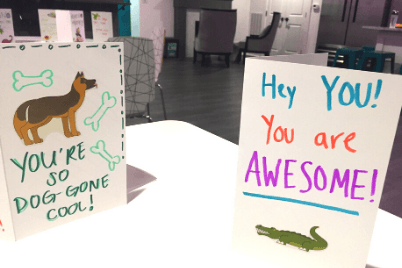 YOU'RE
SO
DOG-GONE
COOL!
Hey YOU!
You are
AWESOME!